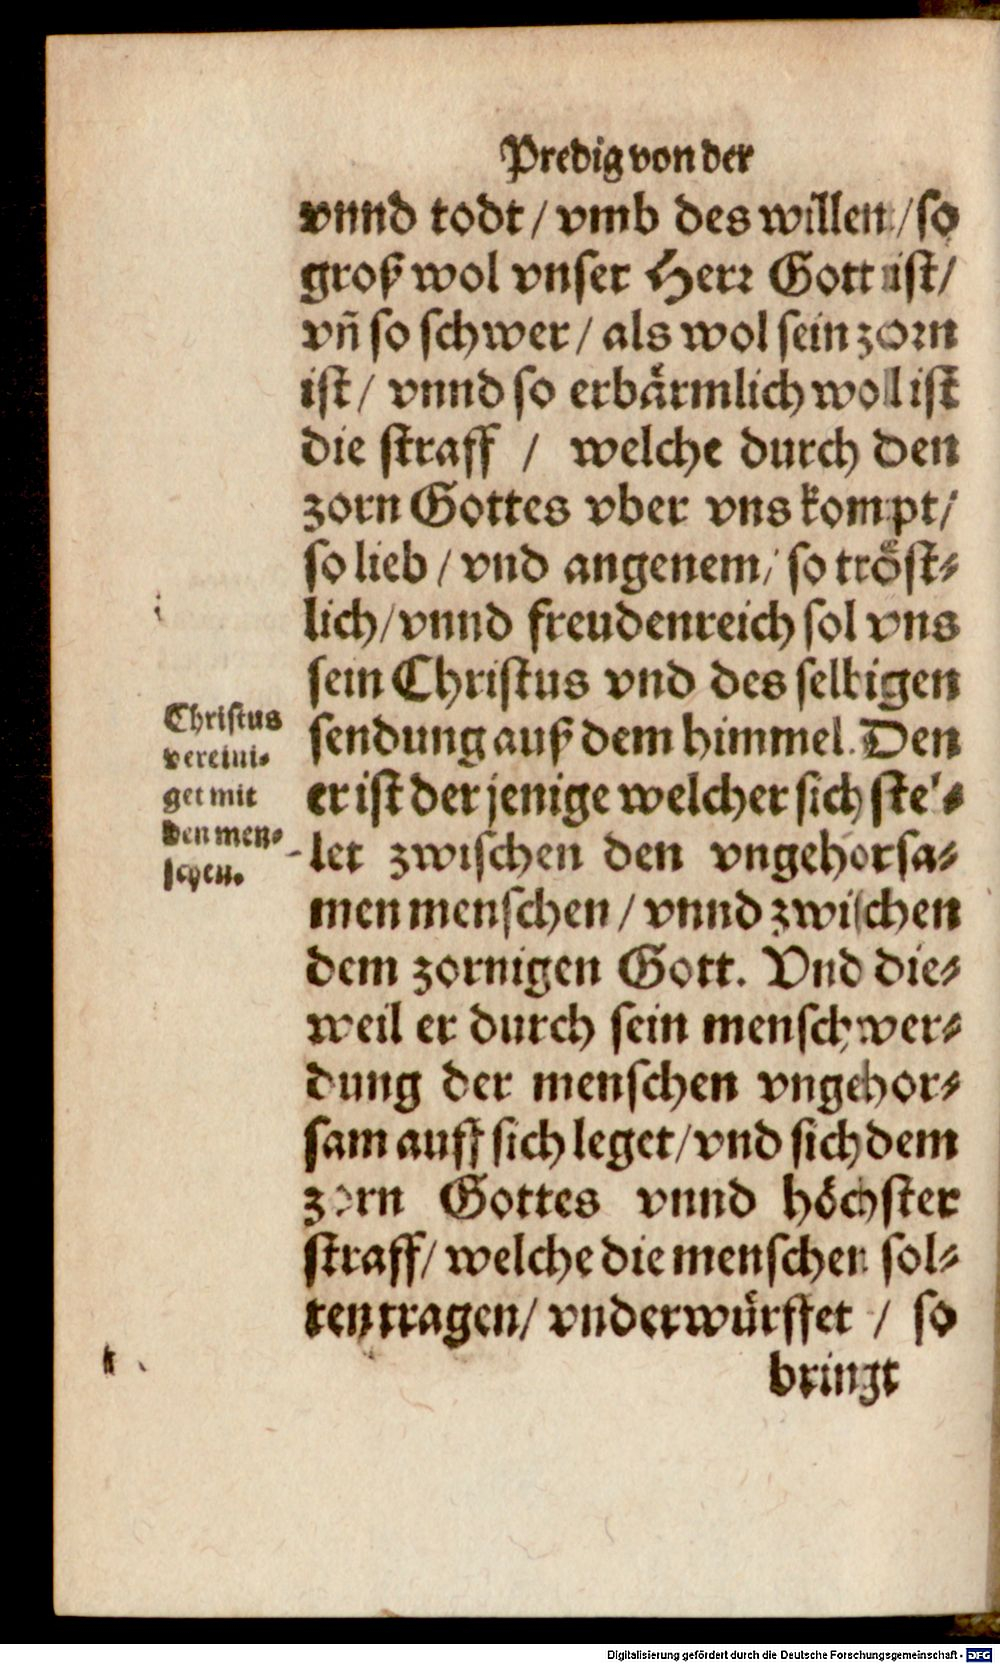 Predig von der
vnnd todt / vmb des willen / so
groß wol vnser Herr Gott ist /
vñ so schwer / als wol sein zorn
ist / vnnd so erbärmlich woll ist
die straff / welche durch den
zorn Gottes vber vns kompt /
so lieb / vnd angenem / so tröst-
lich / vnnd freudenreich sol vns
sein Christus vnd des selbigen
sendung auß dem himmel. Den
er ist der jenige welcher sich stel-
let zwischen den vngehorsa-
men menschen / vnnd zwischen
dem zornigen Gott. Vnd die-
weil er durch sein menschwer-
dung der menschen vngehor-
sam auff sich leget / vnd sich dem
zorn Gottes vnnd höchster
straff / welche die menschen sol-
ten tragen / vnderwürffet / so
bringt
Christus
vereini-
get mit
den men-
schen.
Digitalisierung gefördert durch die Deutsche Forschungsgemeinschaft - DFG